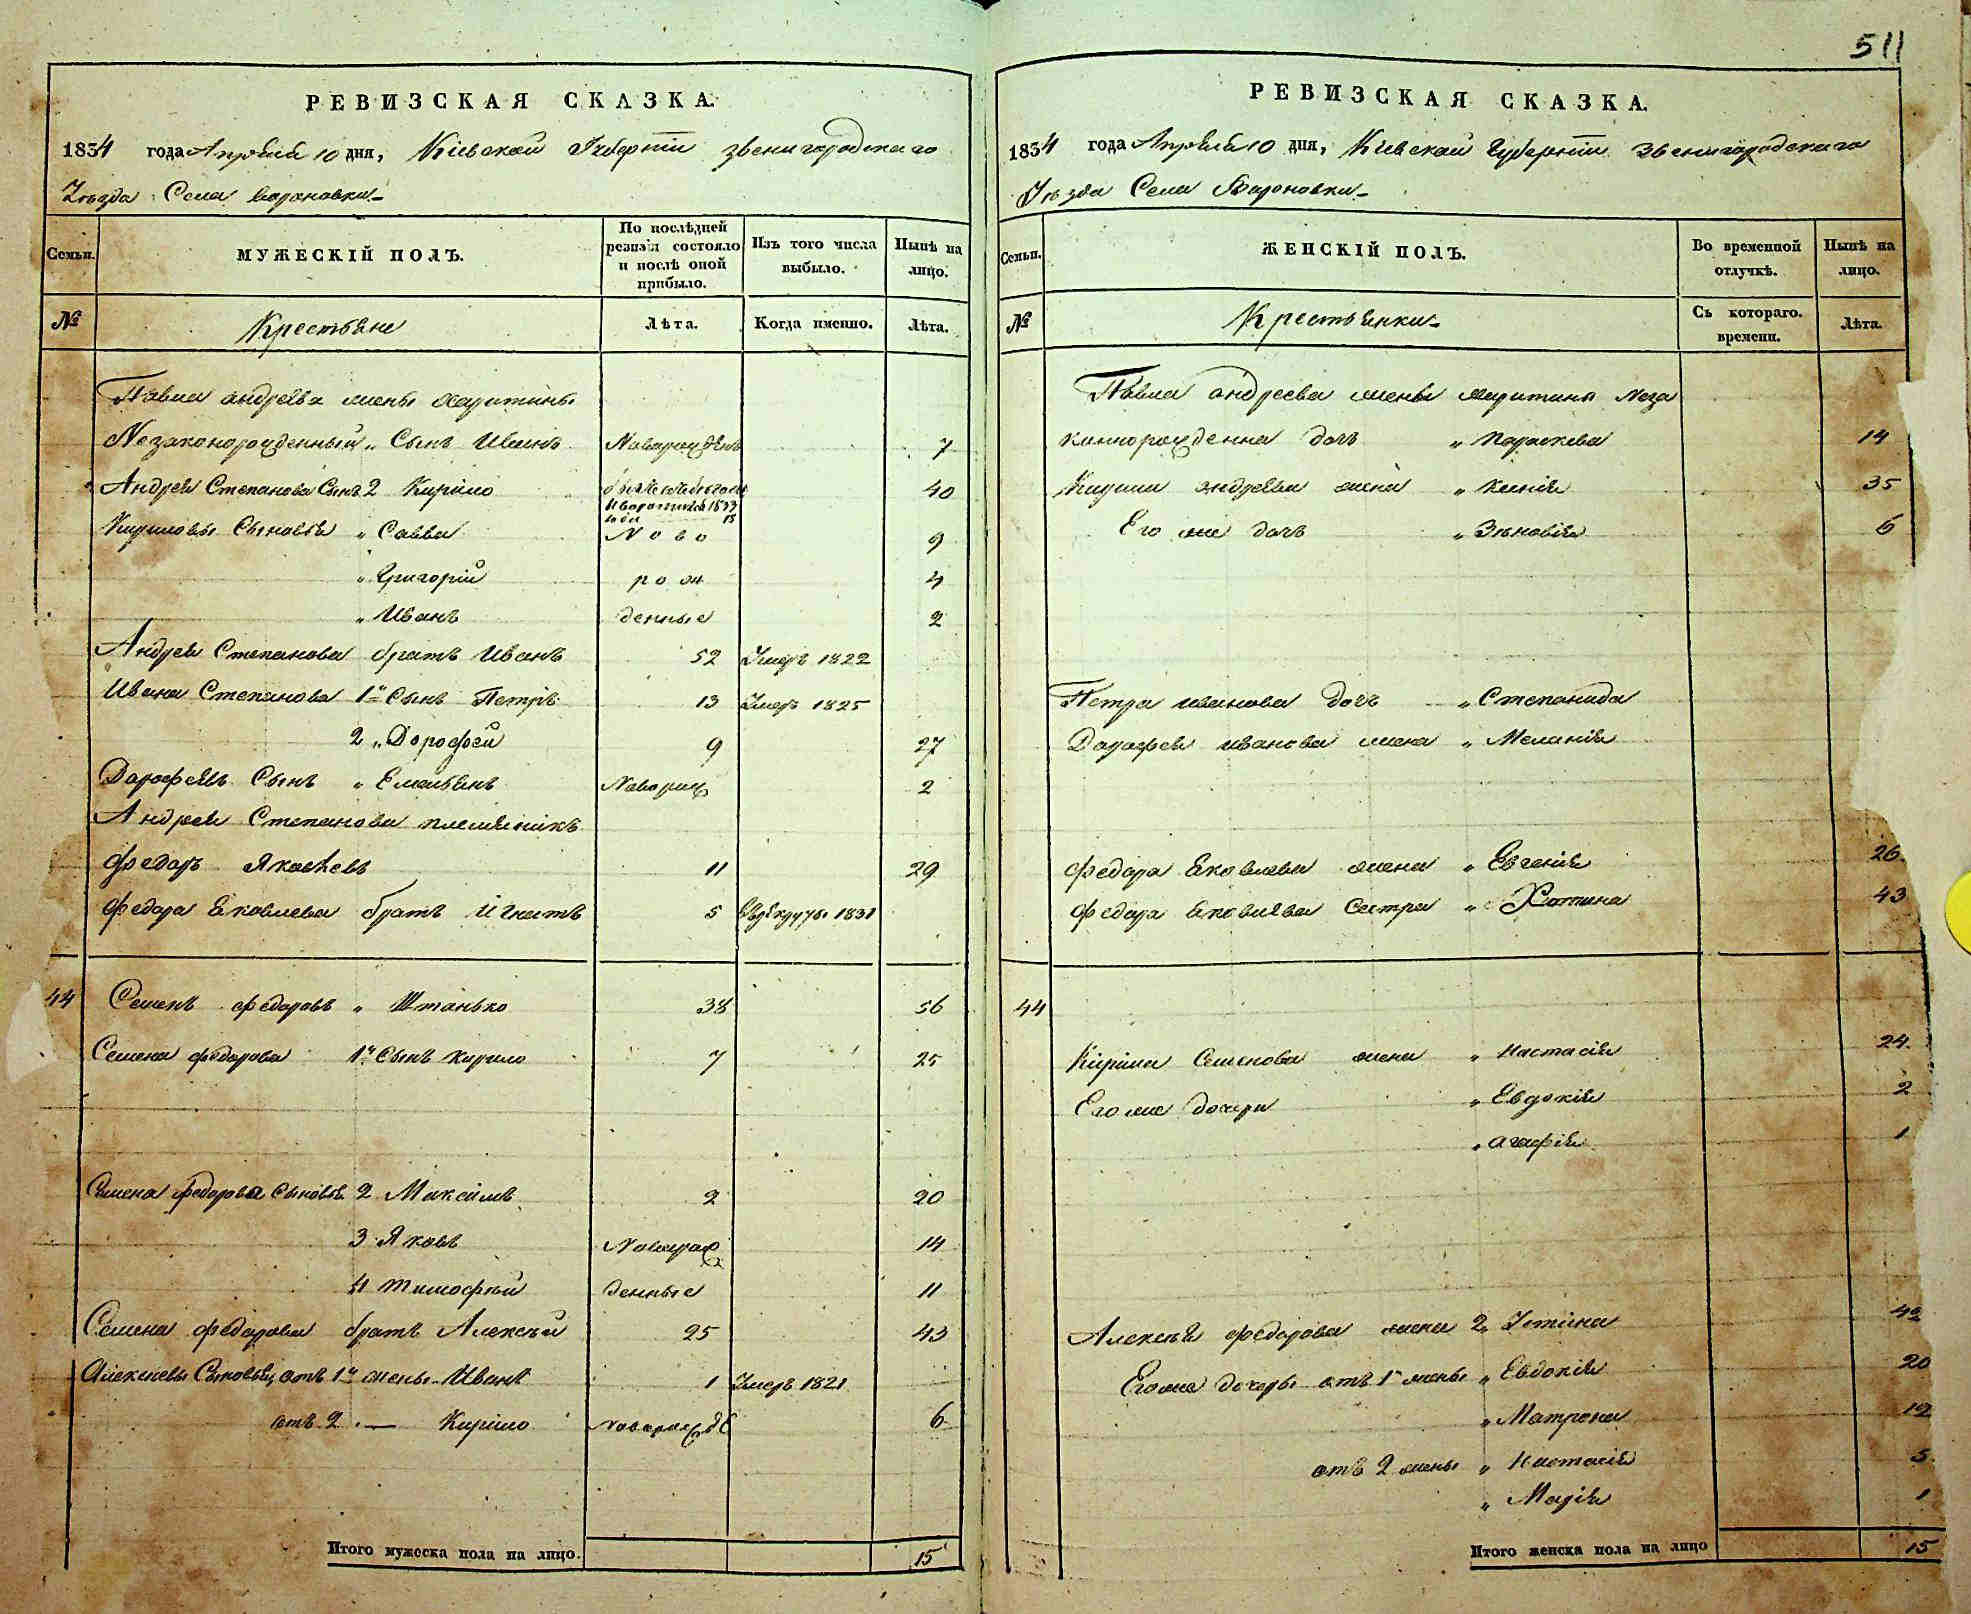 511
РЕВИЗСКАЯ СКАЗКА.
1834 года Апреля 10 дня, Кіевской Губерніи Звенигородскаго
Уезда Села Вороновки
Семьи. МУЖЕСКІЙ ПОЛЪ. По послѣдней ревизіи состояло и послѣ оной прибыло. Изъ того числа выбыло. Нынѣ на лицо.
№ Крестьяне Лѣта. Когда именно. Лѣта.
Павла Андреева жены Харитины
Незаконорожденный „ Сынъ Иванъ Новорожден 7
Андрея Степанова Сынъ 2 Кирило 1833 года 18 40
Кириловы Сыновья „ Савва Ново 9
„ Григорій рож 4
„ Иванъ денные 2
Андрея Степанова братъ Иванъ 52 Умеръ 1822
Ивана Степанова 1й Сынъ Петръ 13 Умеръ 1825
2 „ Дорофей 9 27
Дорофеевъ Сынъ „ Емельянъ Новорож 2
Андрея Степанова племянникъ
Федоръ Яковлевъ 11 29
Федора Яковлева братъ Игнатъ 5 Врекруты 1831
44 Семенъ Федоровъ „ Штанько 38 56
Семена Федорова 1й Сынъ Кирило 7 25
Семена Федорова Сыновья 2 Максимъ 2 20
3 Яковъ Новорож 14
4 Тимофей денные 11
Семена Федорова братъ Алексей 25 43
Алексеевы Сыновья отъ 1й жены Иванъ 1 Умеръ 1821
отъ 2 „ — Кирило Новорожде 6
Итого мужеска пола на лицо. 15
РЕВИЗСКАЯ СКАЗКА.
1834 года Апреля 10 дня, Кіевской Губерніи Звенигородскаго
Уезда Села Вороновки
Семьи. ЖЕНСКІЙ ПОЛЪ. Во временной отлучкѣ. Нынѣ на лицо.
№ Крестьянки Съ котораго. времени. Лѣта.
Павла Андреева жены Харитины Неза
коннорожденна дочь „ Параскева 14
Кирила Андреева жена „ Ксенія 35
Его же дочь „ Зѣновія 6
Петра Иванова дочь „ Степанида
Дорофея Иванова жена „ Меланія
Федора Яковлева жена „ Евгенія 26
Федора Яковлева Сестра „ Хотина 43
44
Кирила Семенова жена „ Настасія 24
Его же дочери „ Евдокія 2
„ Агафія 1
Алексея Федорова жена 2 „ Устина 42
Его же дочеры отъ 1й жены „ Евдокія 20
„ Матрона 12
отъ 2 жены „ Настасія 5
„ Марія 1
Итого женска пола на лицо 15